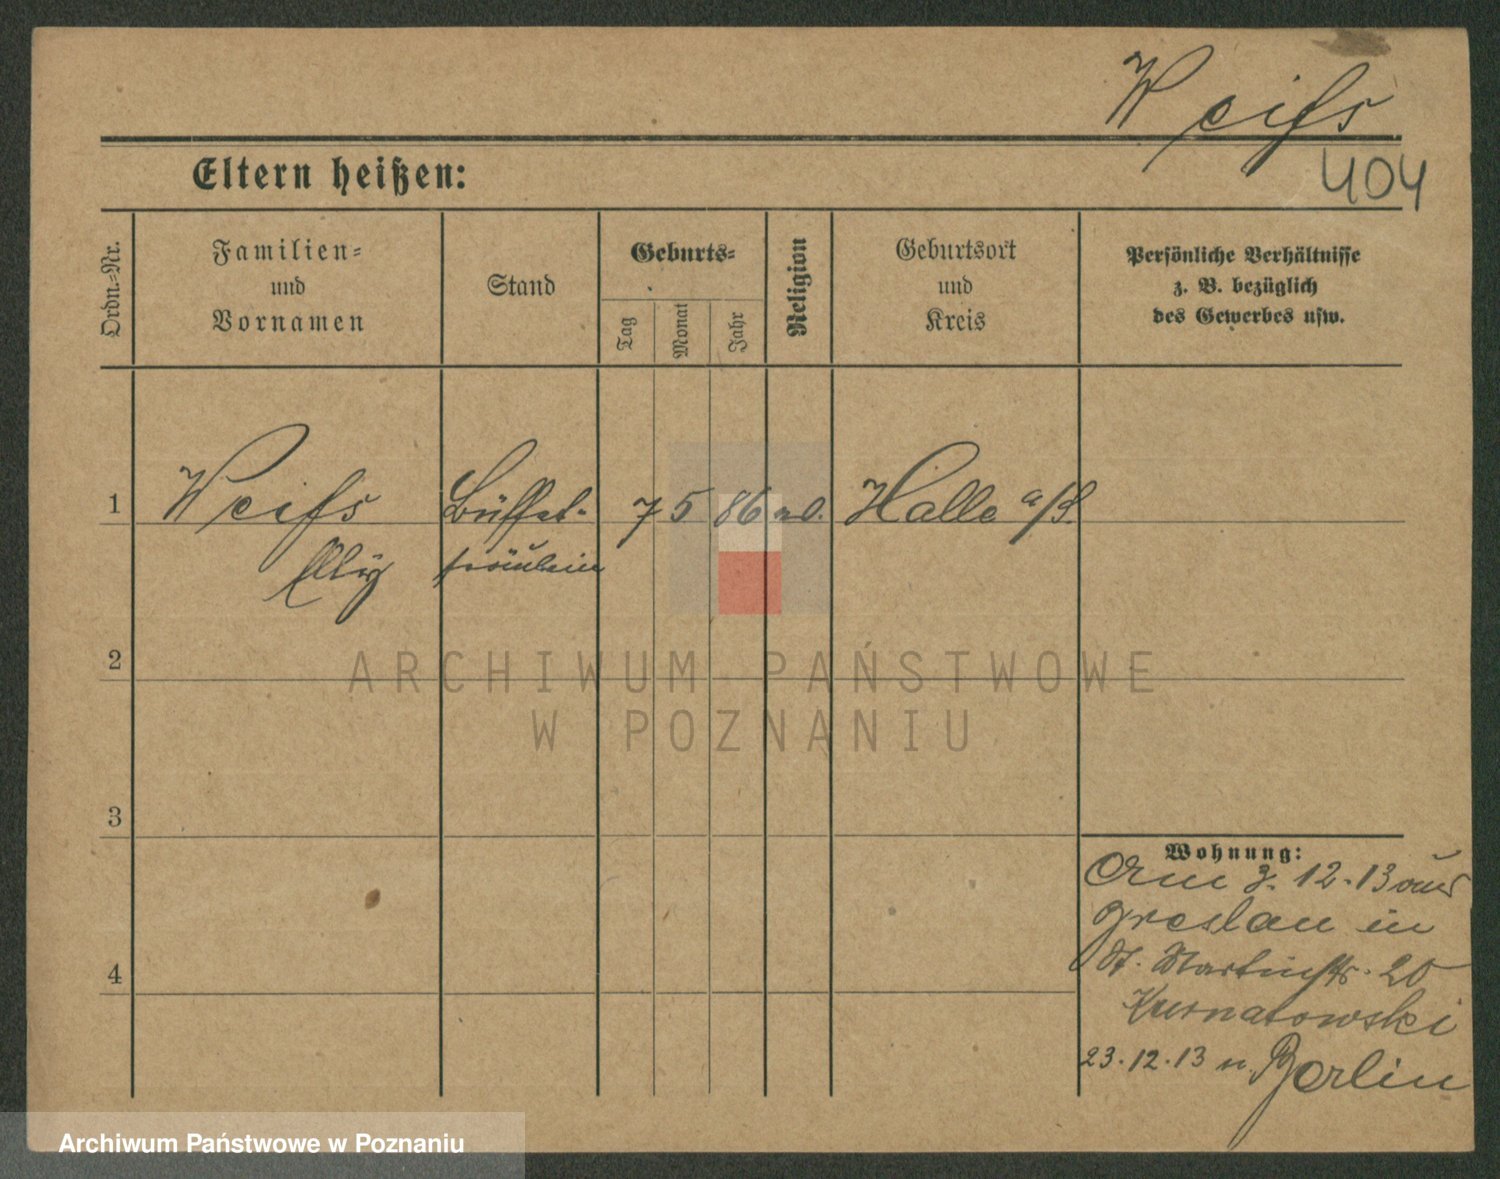 Weiſs
404
Eltern heißen:
Ordn.-Nr.
Familien-
und
Vornamen
Stand
Geburts-
Tag
Monat
Jahr
Religion
Geburtsort
und
Kreis
Persönliche Verhältnisse
z. B. bezüglich
des Gewerbes usw.
1 Weiſs Büffet- 7 5 86 Halle a/S.
Elly fräulein
2
3
4
Wohnung:
Am 3. 12. 13 aus
Breslau in
St. Martinstr. 20
Kurnatowski
23. 12. 13 n. Berlin
ARCHIWUM PAŃSTWOWE
W POZNANIU
Archiwum Państwowe w Poznaniu